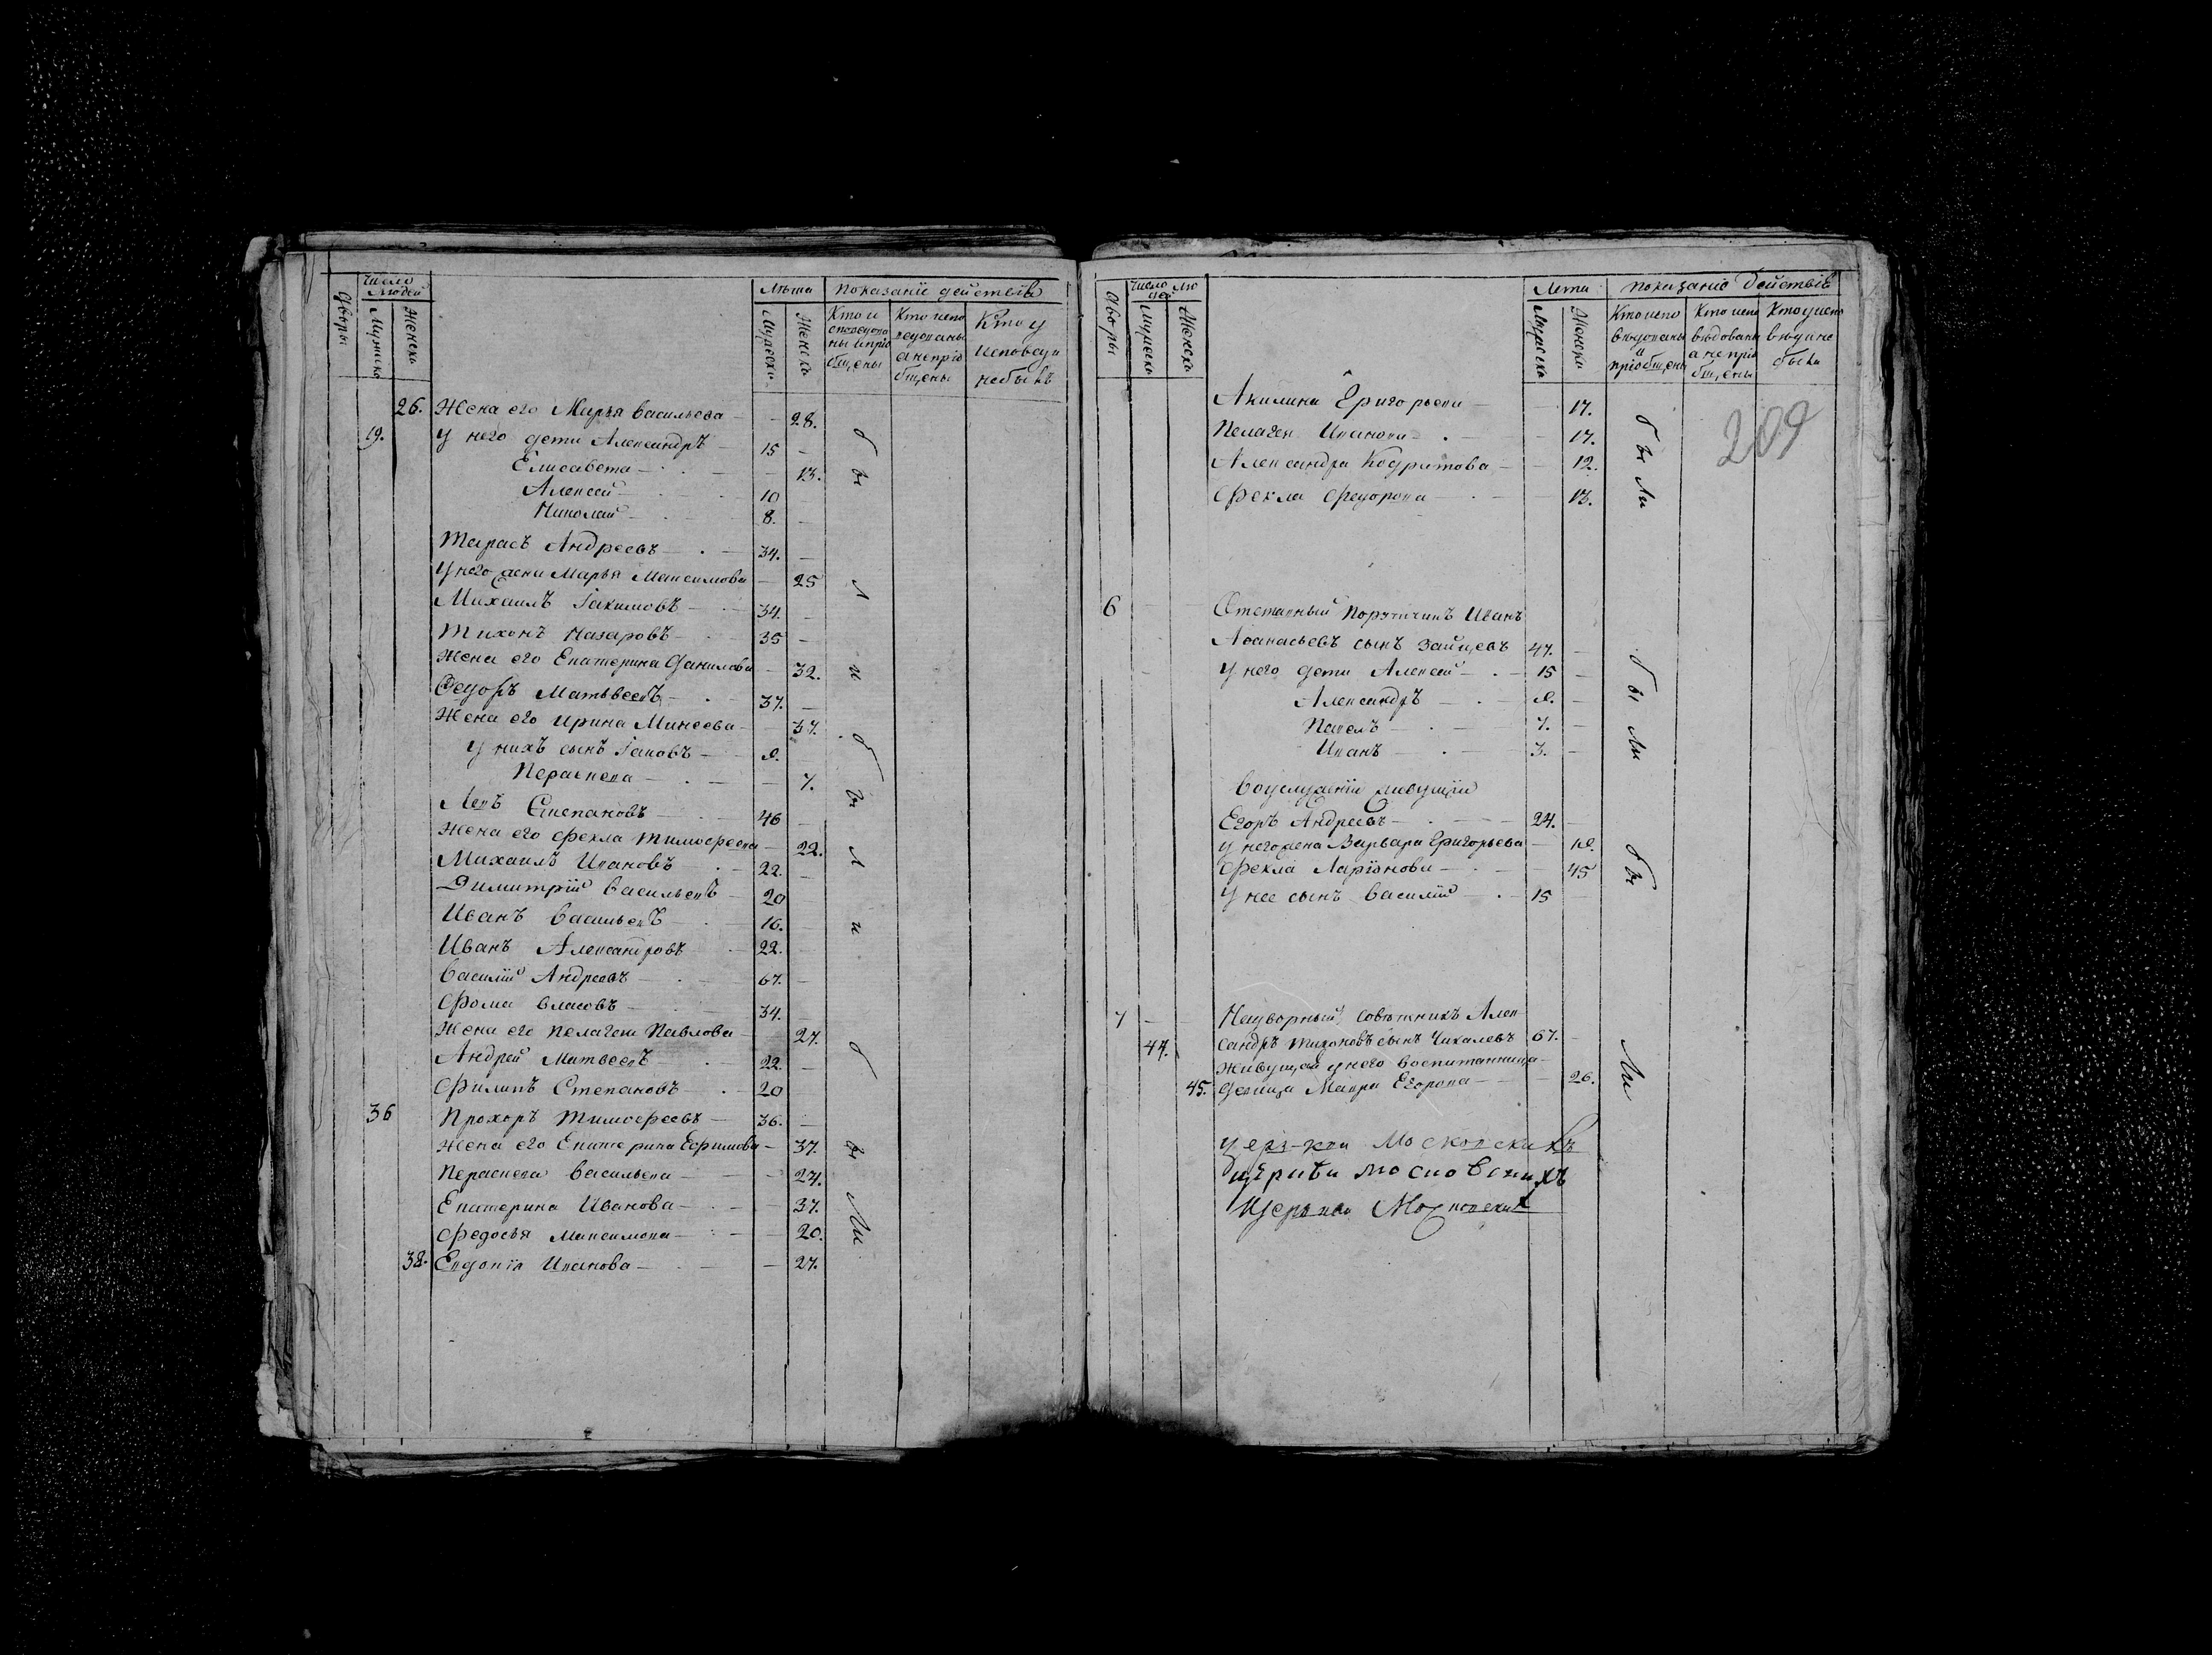 Число Людей
Лѣта
показанїе действiя
Дворы
Мужеска
Женска
Мужеска
Женска
Кто исповедованы и прiобщены
Кто исповедованы а не прiобщены
Кто у исповеди не былъ
26. Жена его Марья Васильева — 28.
19. У него дети Александръ — 15 —
Елисавета — 13.
Алексей — 10
Николай — 8. —
Тарасъ Андреевъ — 34. —
У него жена Марья Максимова — 25
Михаилъ Іакимовъ — 34. —
Тихонъ Назаровъ — 35 —
Жена его Екатерина Данилова — 32.
Федоръ Матьвеевъ — 37. —
Жена его Ирина Минеева — 37.
у нихъ сынъ Іаковъ — 9.
Пераскева — 7.
Левъ Степановъ — 46 —
Жена его Фекла Тимофеева — 22.
Михаилъ Ивановъ 22. —
Димитрїй Васильевъ — 20
Иванъ Васильевъ — 16. —
Иванъ Александровъ — 22. —
Василїй Андреевъ — 67. —
Фома Власовъ — 34. —
Жена его Пелагея Павлова — 27.
Андрей Матвеевъ 22. —
Филипъ Степановъ — 20
36 Прохоръ Тимофеевъ — 36. —
Жена его Екатерина Ефимова — 37.
Пераскева Васильева — 27.
Екатерина Иванова — 37.
Федосья Максимова — 20.
38. Евдокiя Иванова — 27.
были
были
были
Число людей
Лета
показанiе действiв
Дворы
Мужеска
Женска
Мужеска
Женска
Кто исповѣдованы и прiобщены
Кто исповѣдованы а не прiобщены
Кто у исповѣди не были
209
Акилина Григорьева — 17.
Пелагея Иванова — 17.
Александра Кодратова — 12.
Фекла Федорова — 13.
были
6 Отставный Порутчикъ Иванъ
Афанасьевъ сынъ Зайцевъ 47. —
У него дети Алексей — 15 —
Александръ — 9. —
Павелъ — 7. —
Иванъ — 3. —
были
Воуслуженїи живущїи
Егоръ Андреевъ — 24. —
у него жена Варвара Григорьева — 19.
Фекла Ларїонова — 45
У нее сынъ Василїй — 15
7 — Надворный совѣтникъ Алек
47. сандръ Тихоновъ сынъ Чихачевъ 67. —
Живущая у него воспитанница
45. девица Мавра Егорова — 26.
были
церк-кви Московскихъ
цѣркви московскихъ
Церькви Московских